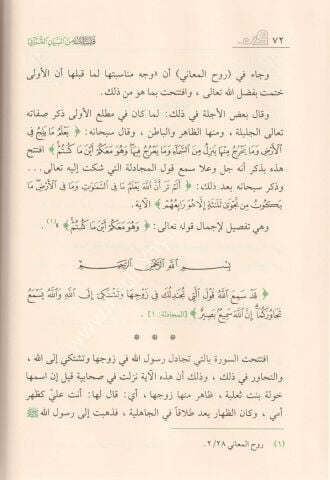 ٧٢
من البيان القرآني
وجاء في (روح المعاني) أن «وجه مناسبتها لما قبلها أن الأولى
ختمت بفضل الله تعالى ، وافتتحت بما هو من ذلك.
وقال بعض الأجلة في ذلك: لما كان في مطلع الأولى ذكر صفاته
تعالى الجليلة ، ومنها الظاهر والباطن ، وقال سبحانه: ﴿ يَعْلَمُ مَا يَلِجُ فِي
ٱلْأَرْضِ وَمَا يَخْرُجُ مِنْهَا وَمَا يَنزِلُ مِنَ ٱلسَّمَآءِ وَمَا يَعْرُجُ فِيهَا وَهُوَ مَعَكُمْ أَيْنَ مَا كُنتُمْ ﴾ افتتح
هذه بذكر أنه جل وعلا سمع قول المجادلة التي شكت إليه تعالى...
وذكر سبحانه بعد ذلك: ﴿ أَلَمْ تَرَ أَنَّ ٱللَّهَ يَعْلَمُ مَا فِي ٱلسَّمَٰوَٰتِ وَمَا فِي ٱلْأَرْضِ مَا
يَكُونُ مِن نَّجْوَىٰ ثَلَٰثَةٍ إِلَّا هُوَ رَابِعُهُمْ ﴾ الآية.
وهي تفصيل لإجمال قوله تعالى: ﴿ وَهُوَ مَعَكُمْ أَيْنَ مَا كُنتُمْ ﴾»(١).
بسم الله الرحمن الرحيم
﴿ قَدْ سَمِعَ ٱللَّهُ قَوْلَ ٱلَّتِي تُجَٰدِلُكَ فِي زَوْجِهَا وَتَشْتَكِيٓ إِلَى ٱللَّهِ وَٱللَّهُ يَسْمَعُ
تَحَاوُرَكُمَآ إِنَّ ٱللَّهَ سَمِيعٌۢ بَصِيرٌ ﴾ [المجادلة: ١] .
* * *
افتتحت السورة بالتي تجادل رسول الله في زوجها وتشتكي إلى الله ،
والتحاور في ذلك ، وذلك أن هذه الآية نزلت في صحابية قيل إن اسمها
خولة بنت ثعلبة ، ظاهر منها زوجها، أي: قال لها: أنت عليّ كظهر
أمي ، وكان الظهار يعد طلاقاً في الجاهلية ، فذهبت إلى رسول الله ﷺ
(١) روح المعاني ٢/٢٨ .